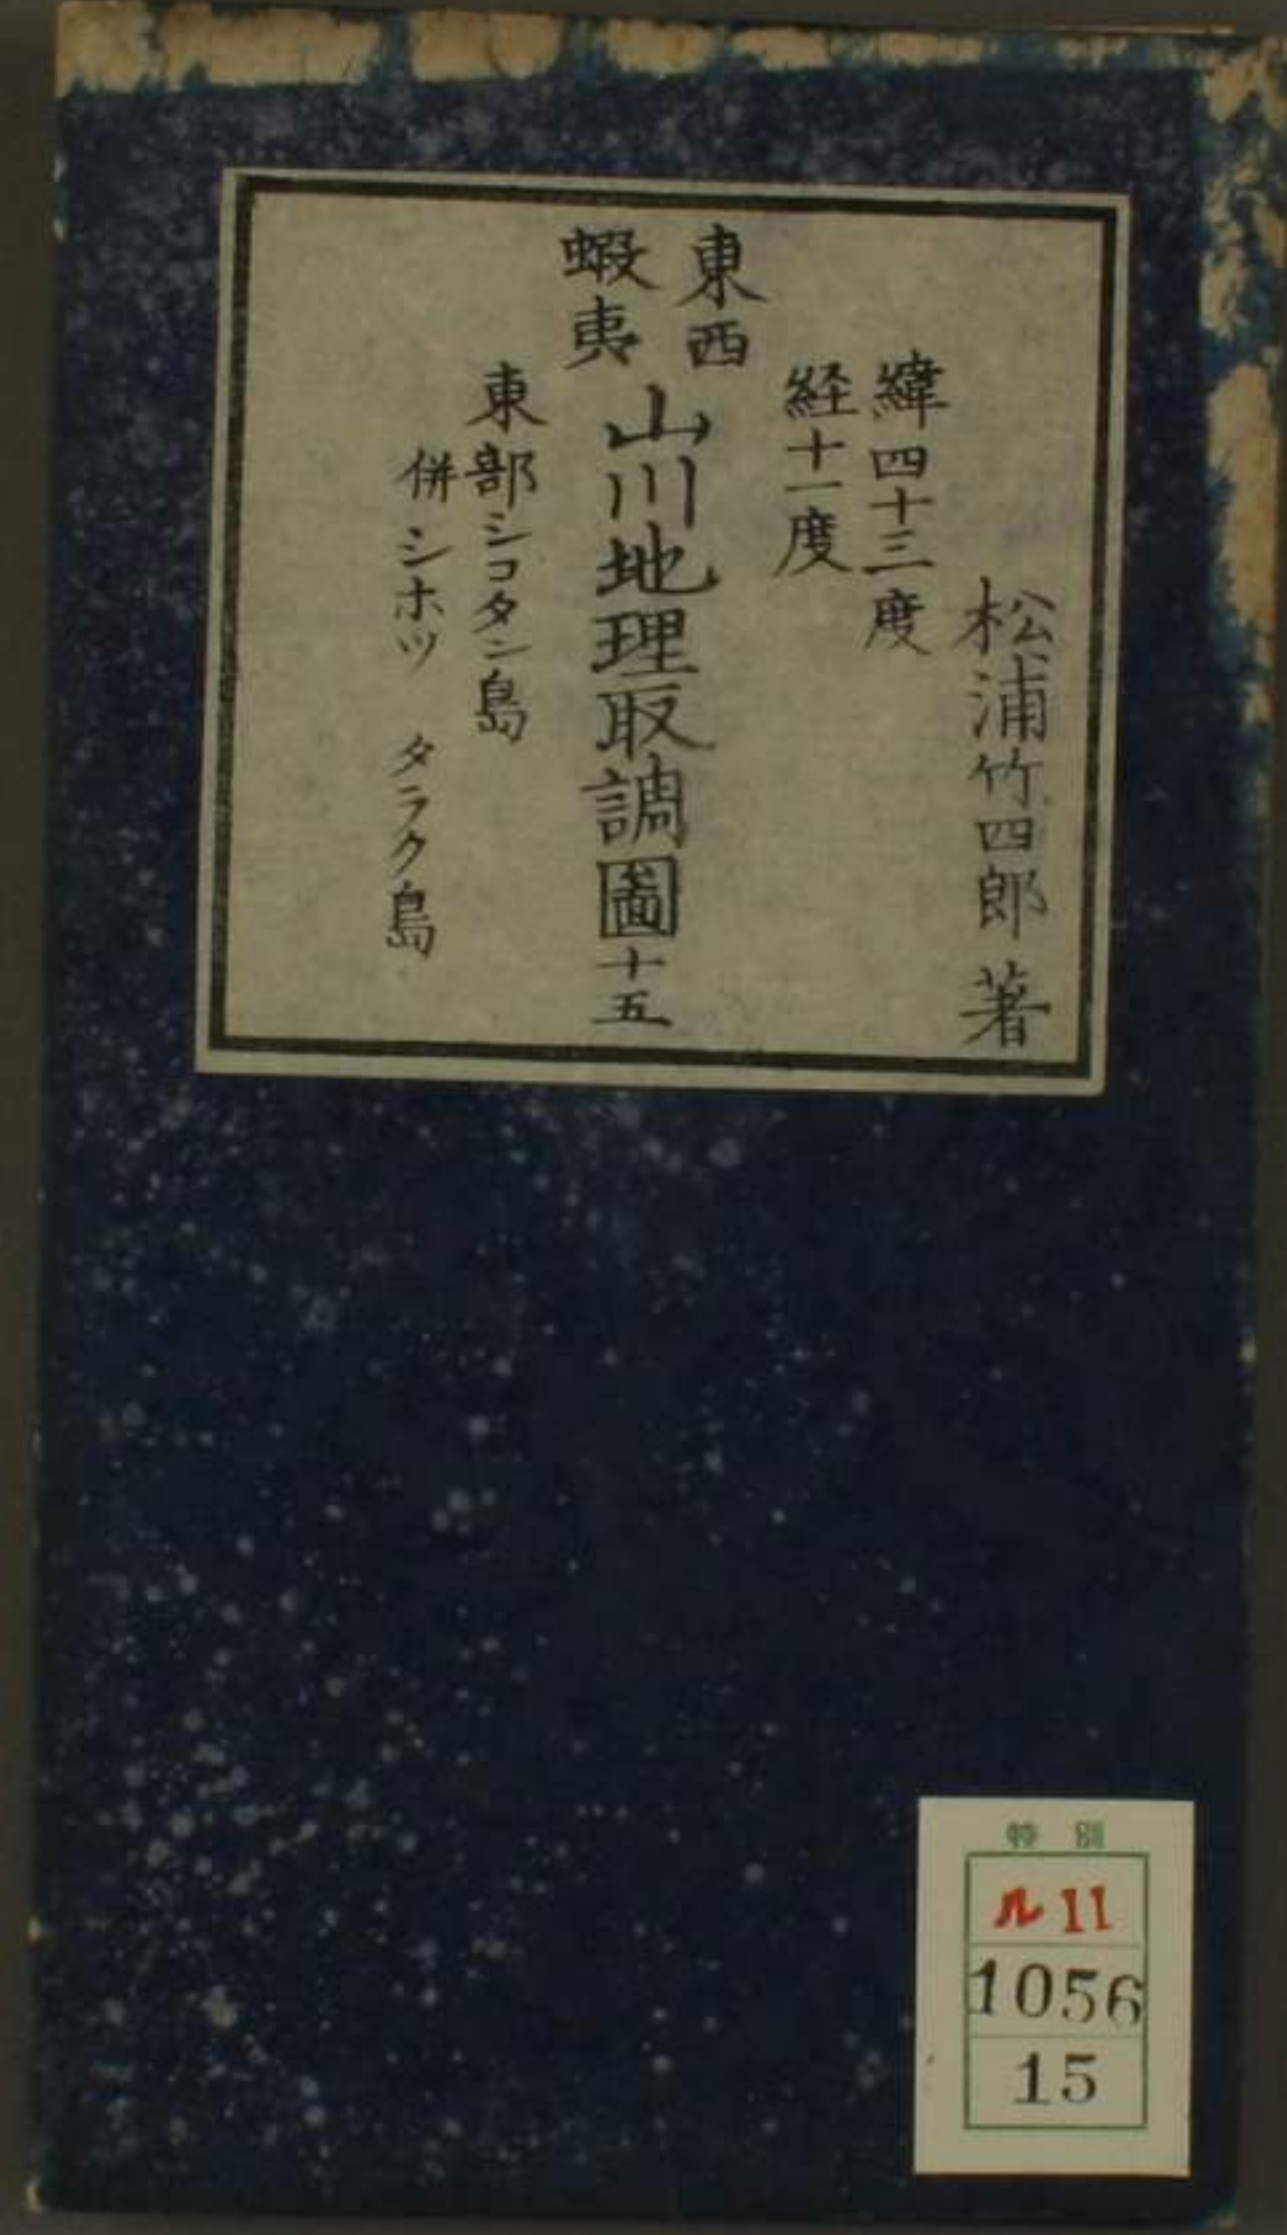 松浦竹四郎 著
緯四十三度
経十一度
東西
蝦夷
山川地理取調圖十五
東部シコタン島
併シホツ タラク島
特別
ル11
1056
15